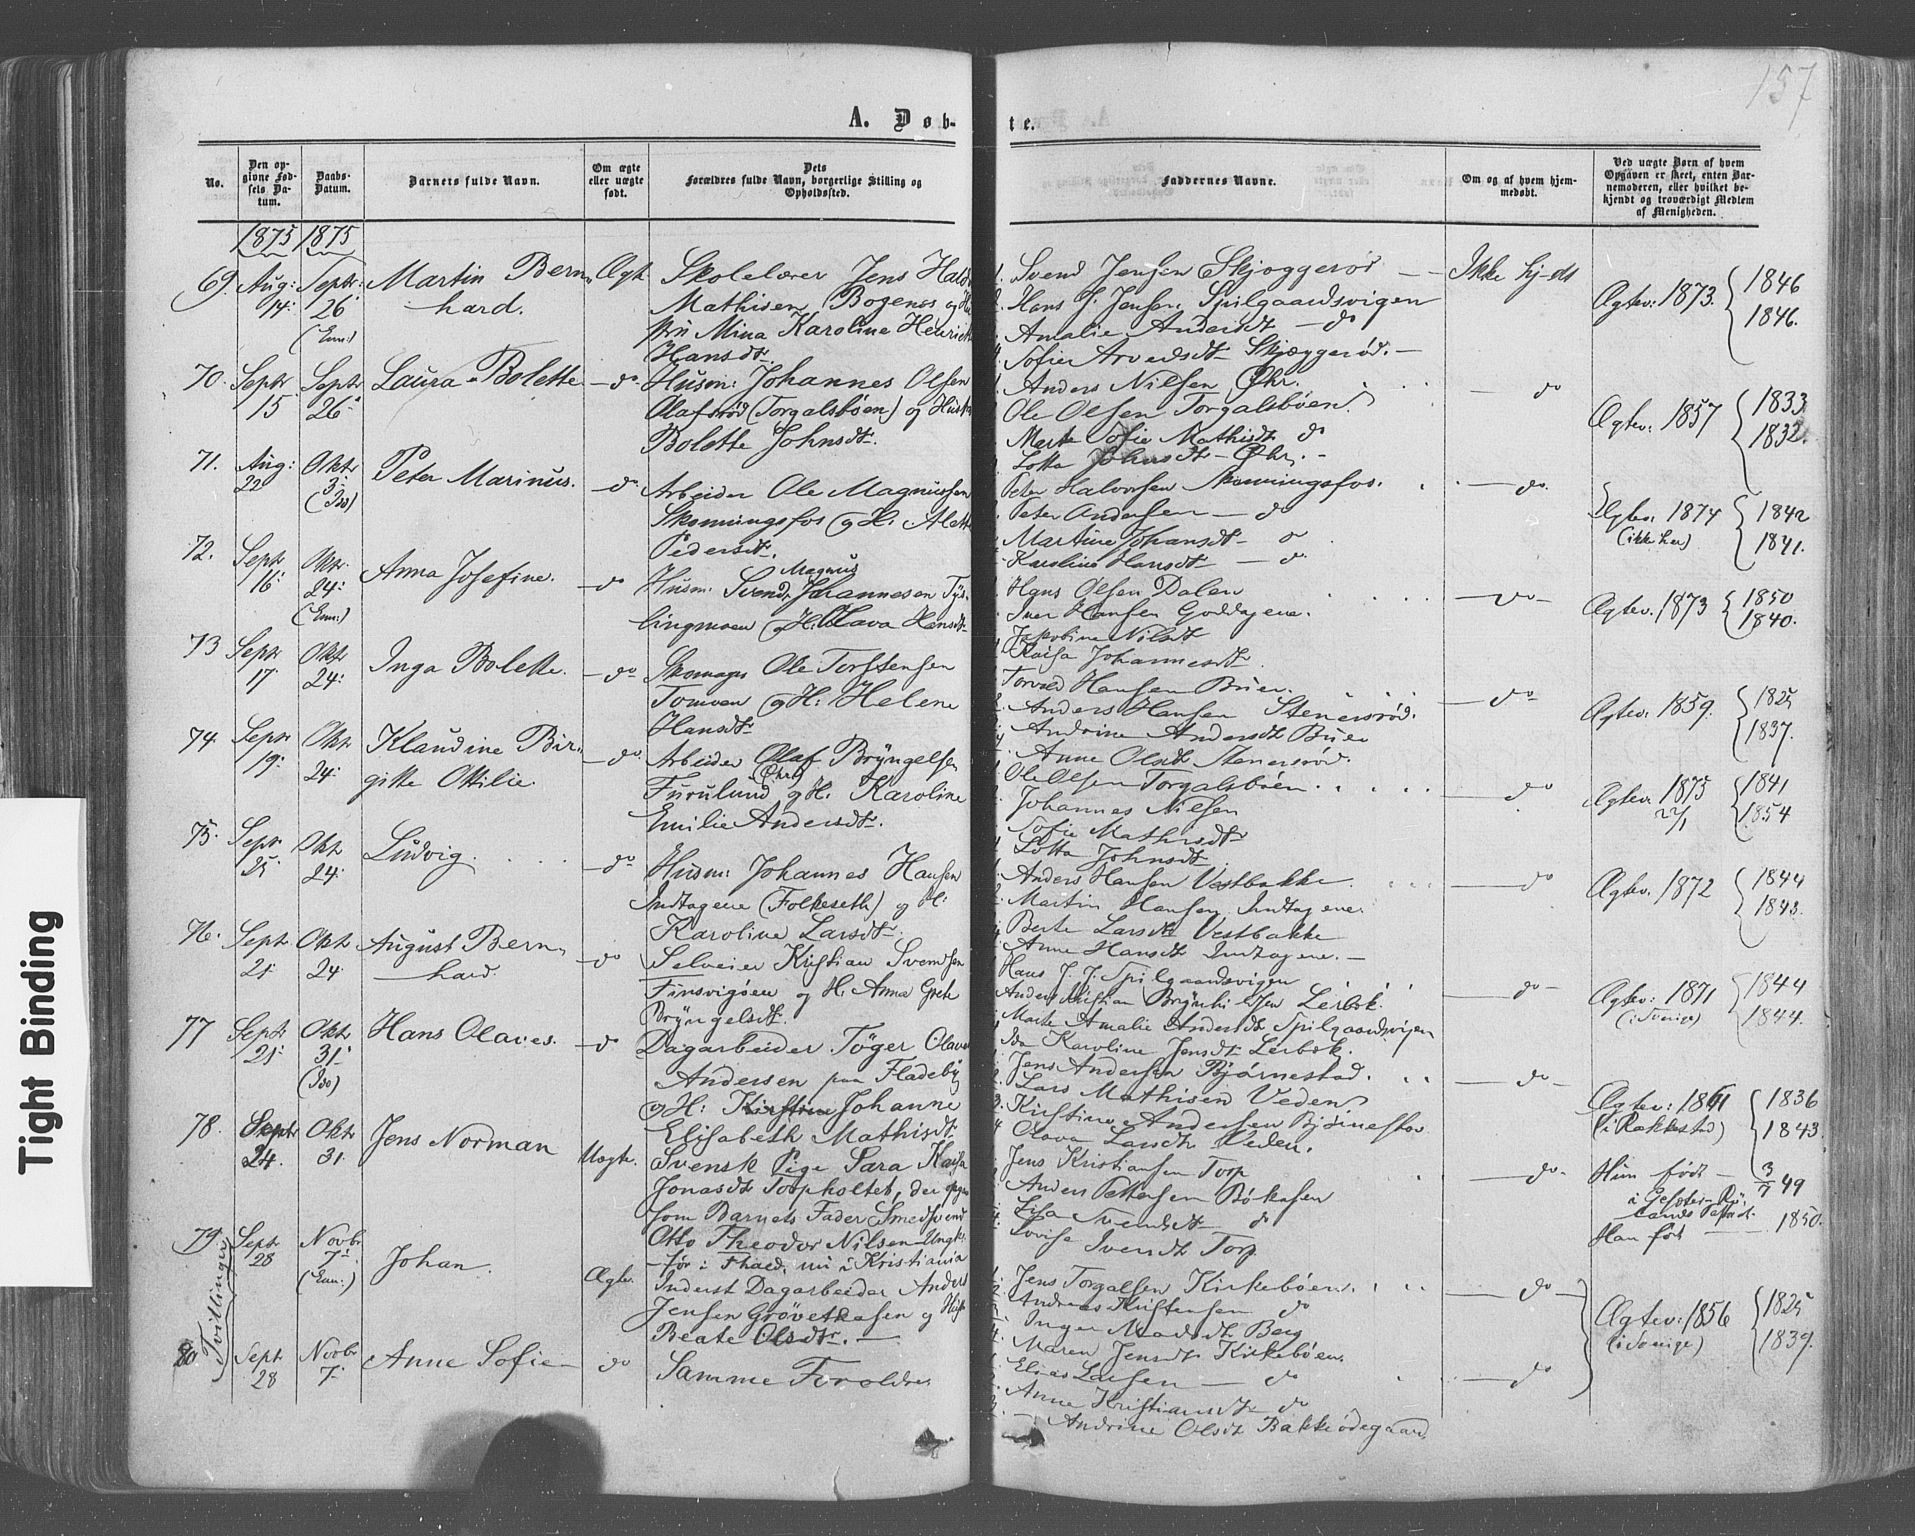 157
A. Døb-
te.
No.
Den opgivne Fødsels Datum.
Daabs-Datum.
Barnets fulde Navn.
Om ægte eller uægte født.
Dets Forældres fulde Navn, borgerlige Stilling og Opholdssted.
Faddernes Navne.
Om og af hvem hjemmedøbt.
Ved uægte Børn af hvem Opgaven er skeet, enten Barnemoderen, eller hvilket bekjendt og troværdigt Medlem af Menigheden.
1875 1875
69. Aug: 14. Septr: 26 (Enn:)
Martin Bern-
hard.
Ægt.
Skolelærer Jens Hald
Mathisen Bogenes og Hu
stru Mina Karoline Henriette
Hansdtr.
1. Svend Jensen Skjoggerød
2. Hans J. Jensen Spilgaardsvigen
Amalie Andersdt do
4. Sofie Arvedsdt Skjæggerød.
Ikke hj-dt
Ægtev: 1873. 1846
1846.
70. Septr 15 Septr 26
Laura Bolette
do
Husm: Johannes Olsen
Olafsrød (Torgalsbøen) og Hustr
Bolette Johnsdtr.
Anders Nilsen Øhr.
Ole Olsen Torgalsbøen.
Marte Sofie Mathisdt do
Lotta Johnsdt Øhr.
do
Ægtev: 1857 1833
1832.
71. Aug: 22 Oktr 3. (Ido)
Peter Marinus.
do
Arbeider Ole Magnussen
Skonningsfos og H: Alette
Pedersdtr.
Peter Halvorsen Skonningsfos.
Peter Andersen do
Martine Johansdt do
Karoline Hansdt do
do.
Ægtev: 1874 (ikke her) 1842
1841.
72. Septr 16 Oktr. 24. (Enn:)
Anna Josefine.
do
Magnus
Husm: Svend Johannesen Tys-
lingmoen og H: Olava Hansdt
Hans Olsen Dalen
Iver Hansen Goddagene.
Jakobine Nilsdt
Kaisa Johannesdt
do
Ægtev: 1873 1850
1840.
73 Septr 17. Oktr 24.
Inga Bolette.
do
Skomager Ole Torstensen
Tomoen og H: Helene
Hansdtr
Torvald Hansen Buer.
Anders Hansen Stenersrød.
Andrine Andersdt Buer
Anne Olsdt Stenersrød.
do
Ægtev: 1859. 1825
1837.
74. Septr 19. Okt. 24.
Klaudine Bir-
gitte Ottilie.
do
Arbeider Olaf Bryngelsen
Furulund (Øhr) og H: Karoline
Emilie Andersdtr.
Ole Olsen Torgalsbøen.
Johannes Nilsen
Sofie Mathisdtr
Lotta Johnsdt
do
Ægtev. 1875 22/1 1841
1854
75. Septr 25 Okt 24.
Ludvig.
do
Husm: Johannes Hansen
Indtagene (Folkeseth) og H:
Karoline Larsdtr.
Anders Hansen Vestbakke.
Martin Hansen Indtagene.
Berte Larsdt Vestbakke
Anne Hansdt Indtagene.
do
Ægtev. 1872 1844
1843.
76. Sept. 21 Okt 24.
August Bern-
hard.
do
Selveier Kristian Svensen
Finsvigøen og H: Anna Grete
Bryngelsdt.
Hans J. J. Spilgaardsvigen
Anders Kristian Brynhildsen Lerbek.
Marte Amalie Andersdt Spilgaardsvigen
Ida Karoline Jensdt Lerbek.
do
Ægtev: 1871 (i Sverige) 1844
1844.
77 Septr 21. Oktr 31. (Ido)
Hans Olaves.
do
Dagarbeider Töger Olaves
Andersen paa Fladeby
og H: Kirstine Johanne
Elisabeth Mathisdt
Jens Andersen Bjørnestad.
Lars Mathisen Veden
3. Kirstine Andersen Bjørnestad
4 Olava Larsdt Veden.
do
Ægtev: 1861 (i Rakkestad) 1836
1843.
78. Septr 24. Oktr 31.
Jens Norman
Uægte.
Svensk Pige Sara Kaisa
Jonasdt Torpholtet, der opgav
som Barnets Fader Smedsvend
Otto Theodor Nilsen Ungk:
før i Fhald, nu i Kristiania
Jens Kristiansen Torp
Anders Pettersen Bøkasen
Lisa Svendsdt do
Lovise Iversdt Torp
do
Hun født 3/7 49
Han født 1850.
79. Septr 28 Novbr 7. (Enn:)
Tvillinger
Johan.
Ægte.
Inderst Dagarbeider Anders
Jensen Grøvetkasen og Hustr
Beate Olsdtr.
Jens Torgalsen Kirkebøen.
Andreas Kristensen do
Inger Madsdt Berg
Maren Jensdt Kirkebøen.
do
Ægtev: 1856 (i Sverige) 1825
1839.
80. Sept 28 Novbr 7.
Anne Sofie
do
Samme Foreldre
Elias Larsen do
Anne Kristiansdt do
Andrine Olsdt Bakkeødegaard
do
Tight Binding